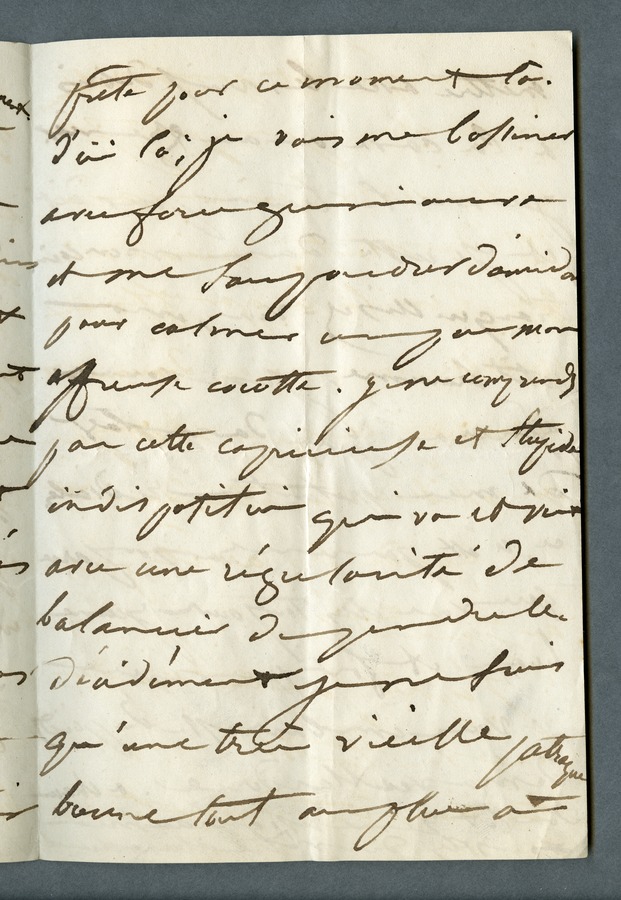 prête pour ce moment là.
d'ici là, je vais me bassiner
avec force guimauve
et me saupoudrer d'amidon
pour calmer un peu mon
affreuse cocotte. je ne comprends
pas cette capricieuse et stupide
indisposition qui va et vient
avec une régularité de
balancier de pendule.
décidément je ne suis
qu'une très vieille patraque
bonne tout au plus à